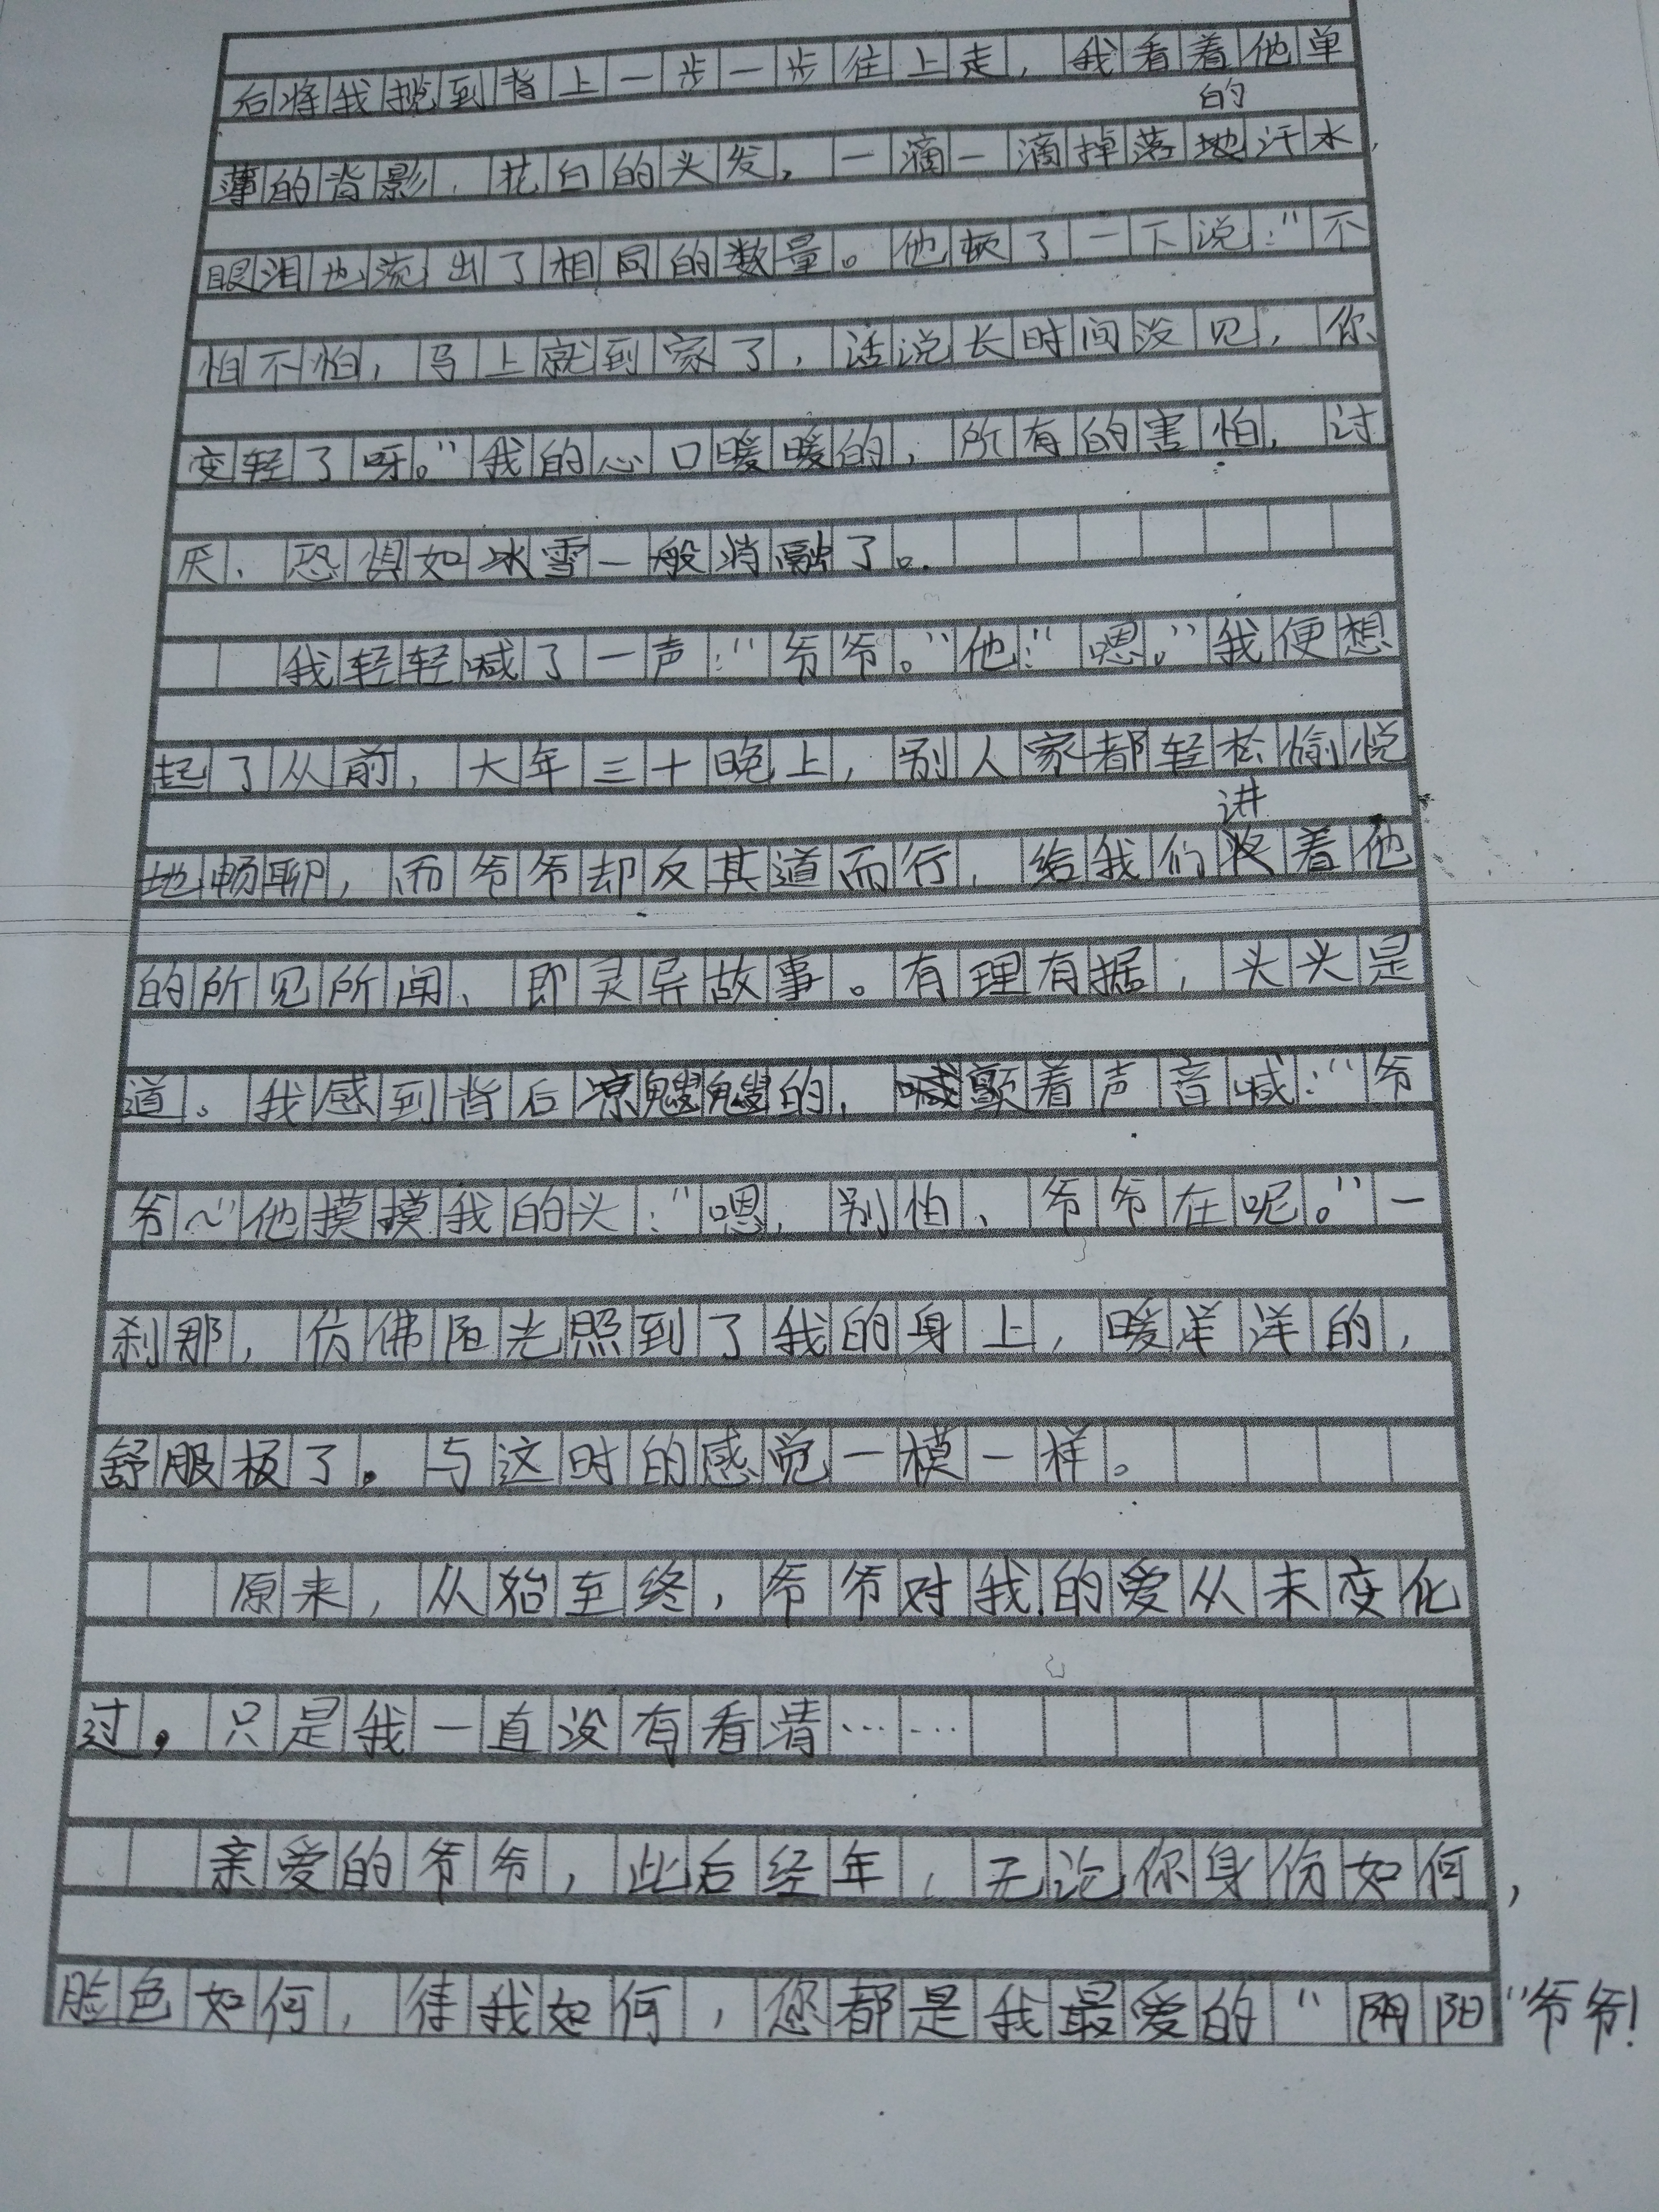 后将我揽到背上一步一步往上走，我看着他单
薄的背影，花白的头发，一滴一滴掉落的汗水，
眼泪也流出了相同的数量。他顿了一下说：“不
怕不怕，马上就到家了，话说长时间没见，你
变轻了呀。”我的心口暖暖的，所有的害怕，讨
厌、恐惧如冰雪一般消融了。
我轻轻喊了一声：“爷爷。”他：“嗯。”我便想
起了从前，大年三十晚上，别人家都轻松愉悦
地畅聊，而爷爷却反其道而行，给我们讲着他
的所见所闻、即灵异故事。有理有据，头头是
道。我感到背后凉飕飕的，颤着声音喊：“爷
爷～”他摸摸我的头：“嗯，别怕、爷爷在呢。”一
刹那，仿佛阳光照到了我的身上，暖洋洋的，
舒服极了。与这时的感觉一模一样。
原来，从始至终，爷爷对我的爱从未变化
过，只是我一直没有看清……
亲爱的爷爷，此后经年，无论你身份如何，
脸色如何，待我如何，您都是我最爱的“阴阳”爷爷！